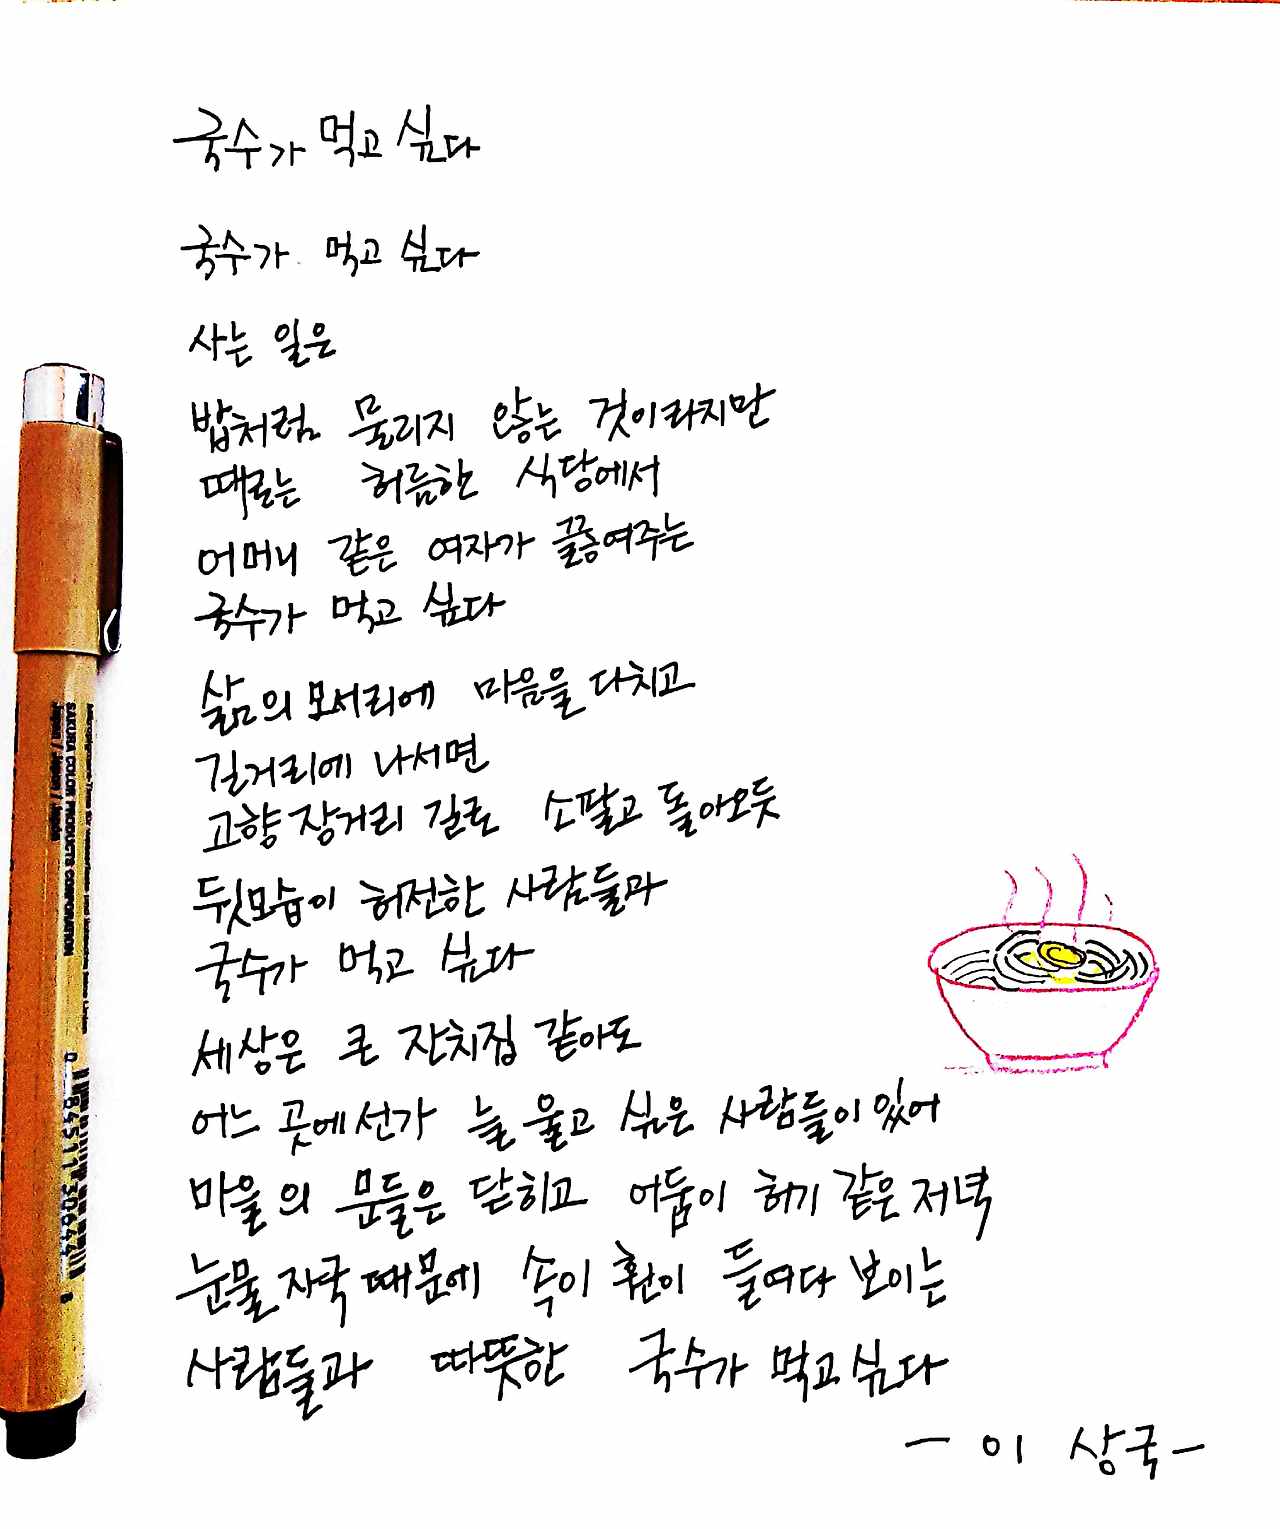 국수가 먹고 싶다
국수가 먹고 싶다
사는 일은
밥처럼 물리지 않는 것이라지만
때로는 허름한 식당에서
어머니 같은 여자가 끓여주는
국수가 먹고 싶다
삶의 모서리에 마음을 다치고
길거리에 나서면
고향 장거리 길로 소팔고 돌아오듯
뒷모습이 허전한 사람들과
국수가 먹고 싶다
세상은 큰 잔치집 같아도
어느 곳에선가 늘 울고 싶은 사람들이 있어
마을의 문들은 닫히고 어둠이 허기 같은 저녁
눈물 자국 때문에 속이 훤히 들여다 보이는
사람들과 따뜻한 국수가 먹고 싶다
- 이 상국 -
SAKURA COLOR PRODUCTS CORPORATION